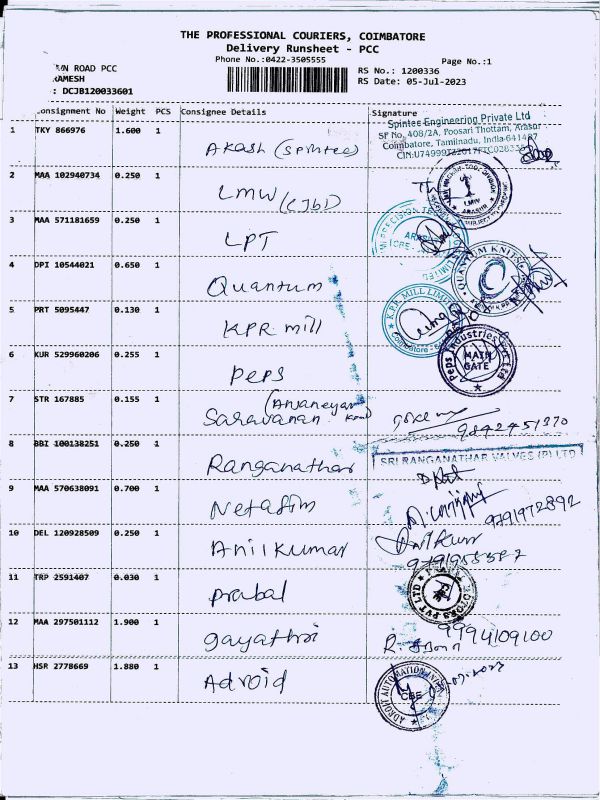 THE PROFESSIONAL COURIERS, COIMBATORE
Delivery Runsheet - PCC
Phone No.:0422-3505555
Page No.:1
ROAD PCC
RS No.: 1200336
RAMESH
RS Date: 05-Jul-2023
: DCJB120033601
onsignment No Weight PCS Consignee Details Signature
1 TKY 866976 1.600 1 Akash (Sprintec)
Spintec Engineering Private Ltd
SF No. 408/2A, Poosari Thottam, Arasur
Coimbatore, Tamilnadu, India-641407
2 MAA 102940734 0.250 1 LMW (CJbD)
LMW
ARASUR
3 MAA 571181659 0.250 1 LPT
4 DPI 10544021 0.650 1 Quantum
QUANTUM KNITS
5 PRT 5095447 0.130 1 KPR mill
K.P.R. MILL LIMITED
6 KUR 529960206 0.255 1 peps
Peps Industries Pvt Ltd
MAIN GATE
7 STR 167885 0.155 1 (Anjaneyam
Saravanan
9842451370
8 BBI 100138251 0.250 1 Ranganathar
SRI RANGANATHAR VALVES (P) LTD
9 MAA 570638091 0.700 1 Netafim
9791972892
10 DEL 120928509 0.250 1 Anilkumar
Anilkumar
11 TRP 2591407 0.030 1 prabal
12 MAA 297501112 1.900 1 gayathri
9994109100
13 HSR 2778669 1.880 1 Adroid
CBE